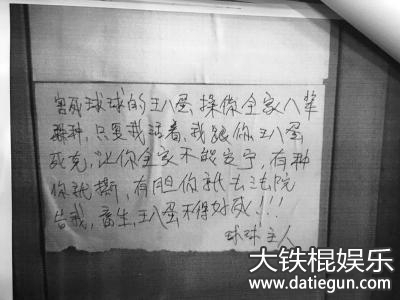 害死球球的王八蛋操你全家八辈
杂种,只要我活着,我跟你王八蛋
死克,让你全家不能安宁,有种
你就撕,有胆你就去法院
告我,畜生,王八蛋不得好死!!!
球球主人
大铁棍娱乐
www.datiegun.com